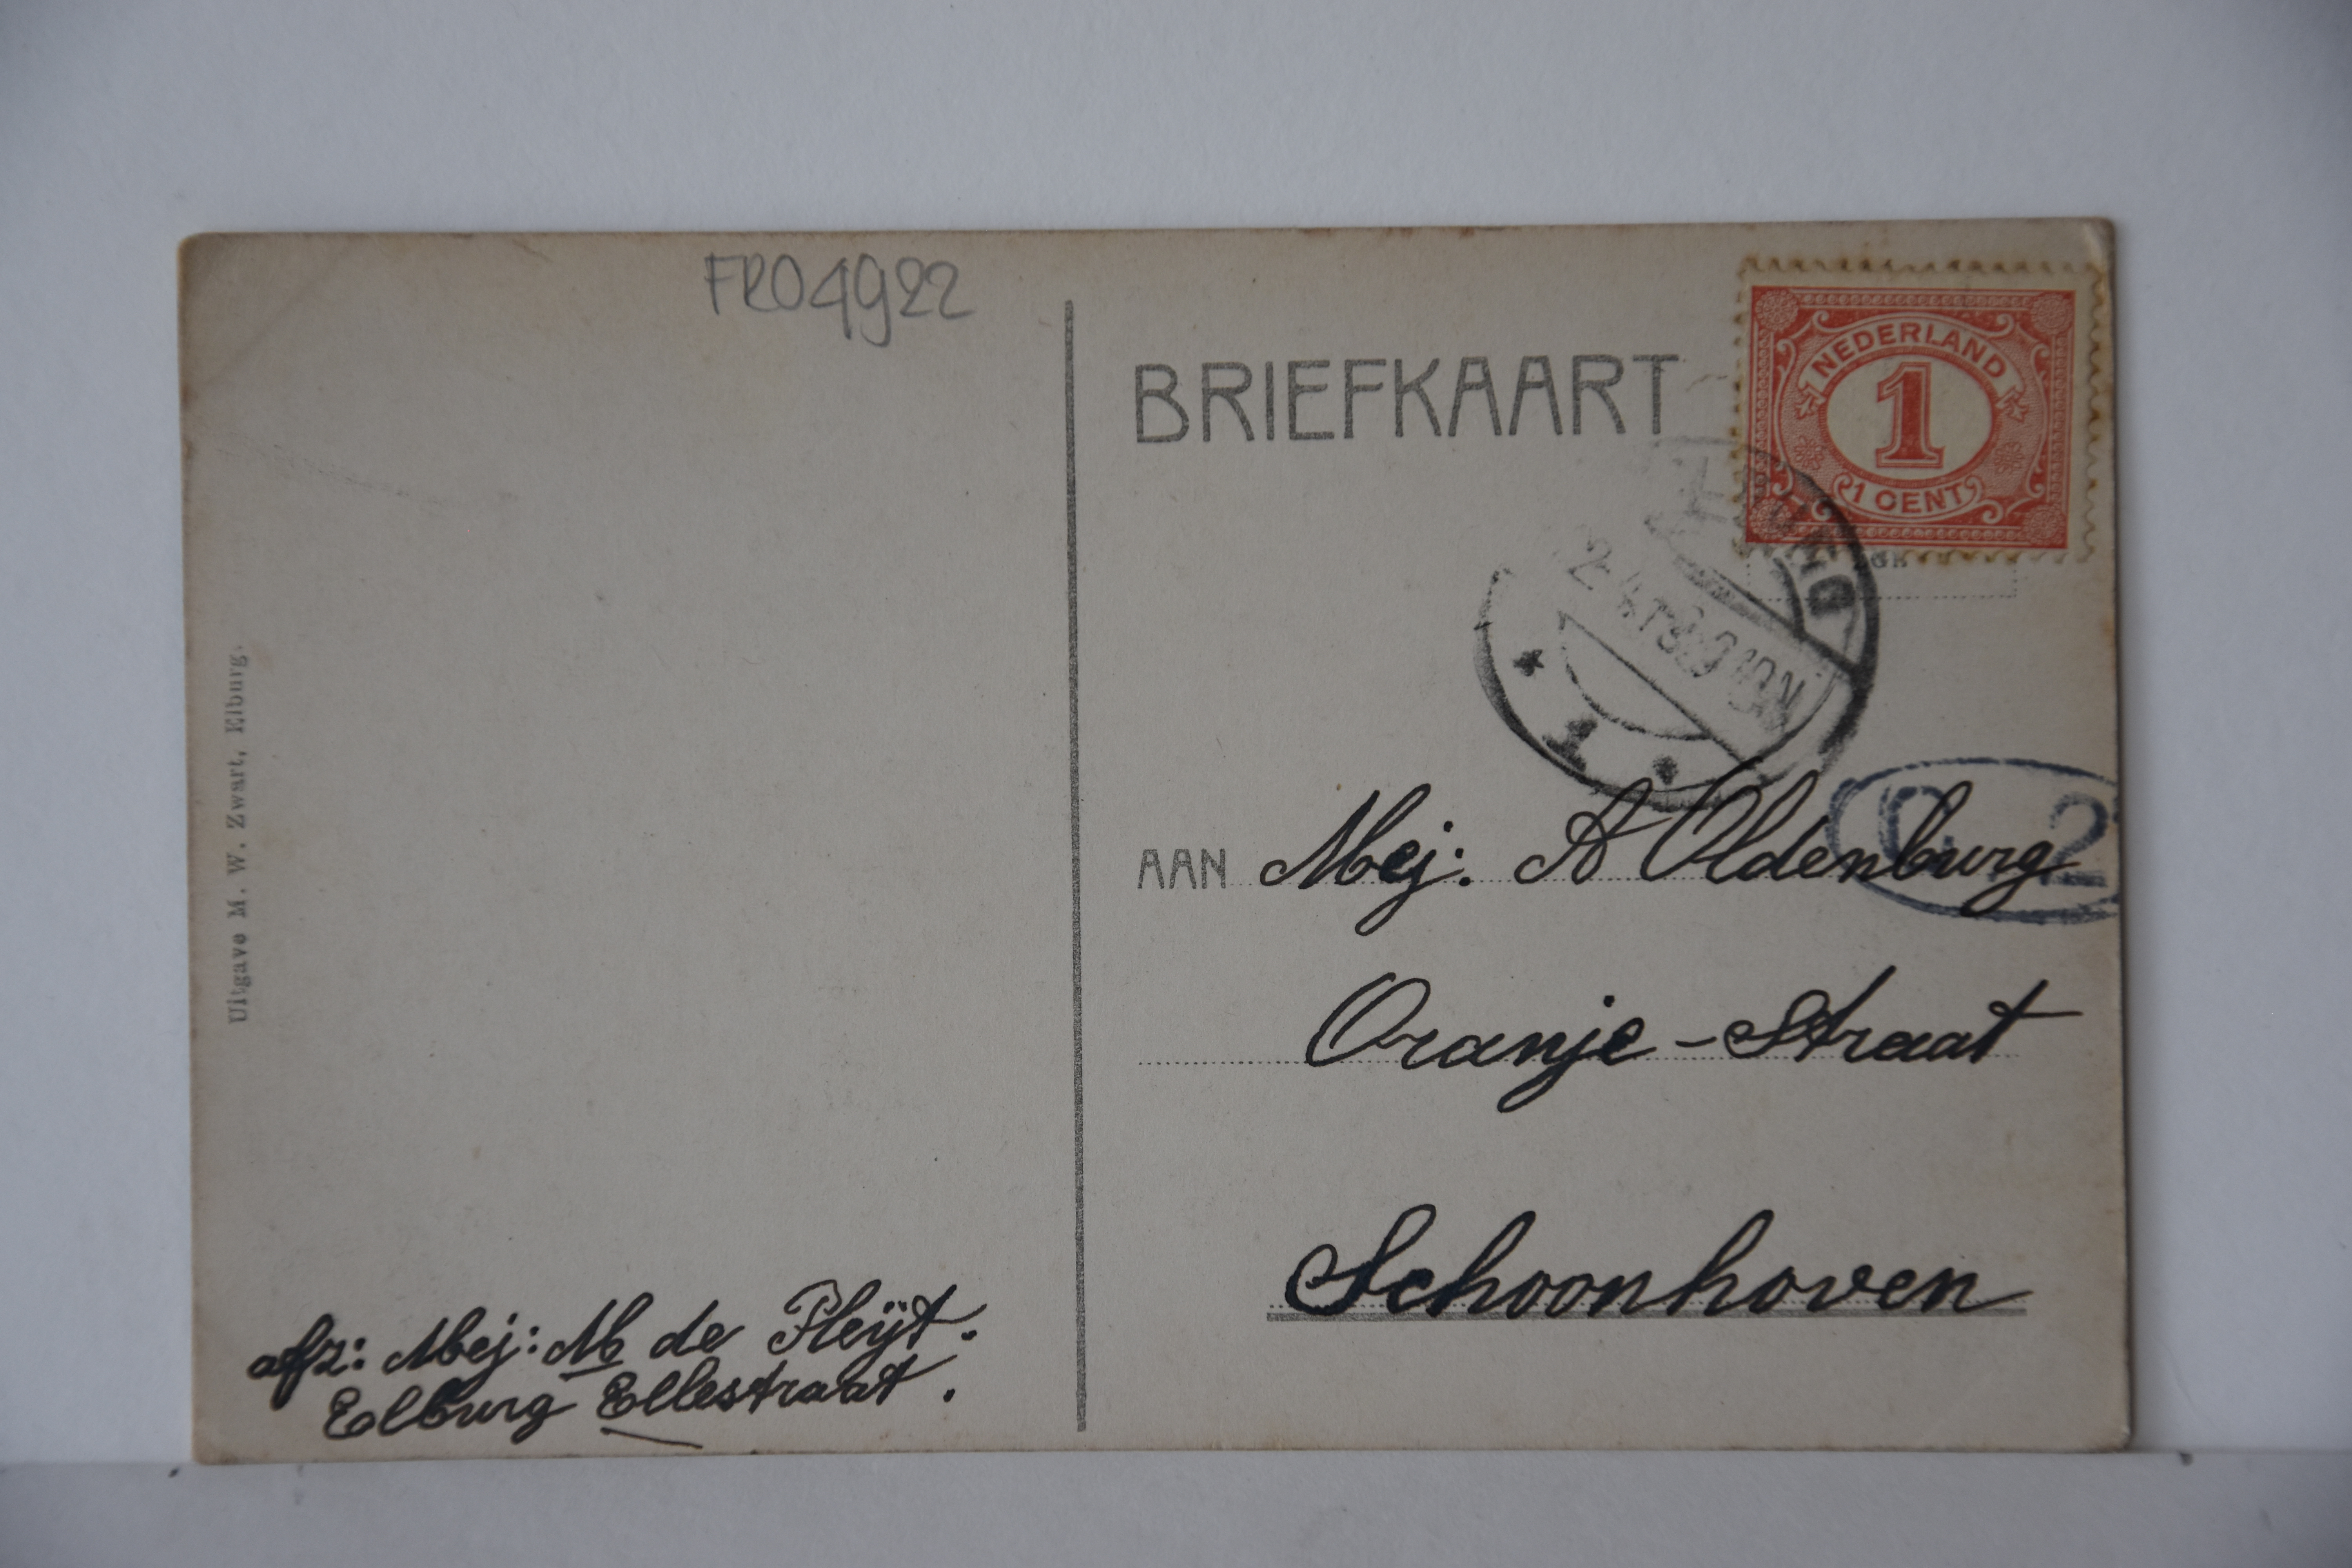 FRO4922
BRIEFKAART
NEDERLAND
1
1 CENT
1
C 2
AAN Mej: A Oldenburg
Oranje-Straat
Schoonhoven
Uitgave M. W. Zwart, Elburg.
afz: Mej: M de Pleijt.
Elburg Ellestraat.